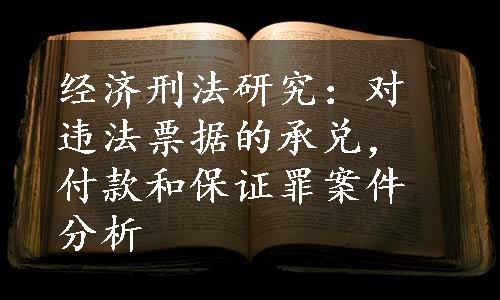 经济刑法研究：对
违法票据的承兑，
付款和保证罪案件
分析